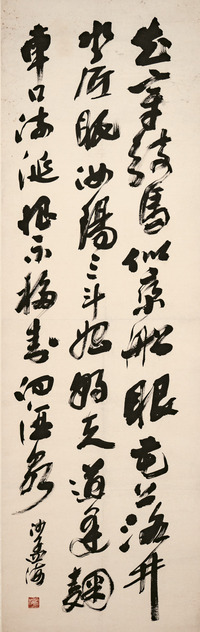 知章騎馬似乘船眼花落井
水底眠汝陽三斗始朝天道逢麴
車口流涎恨不移封向酒泉
沙孟海